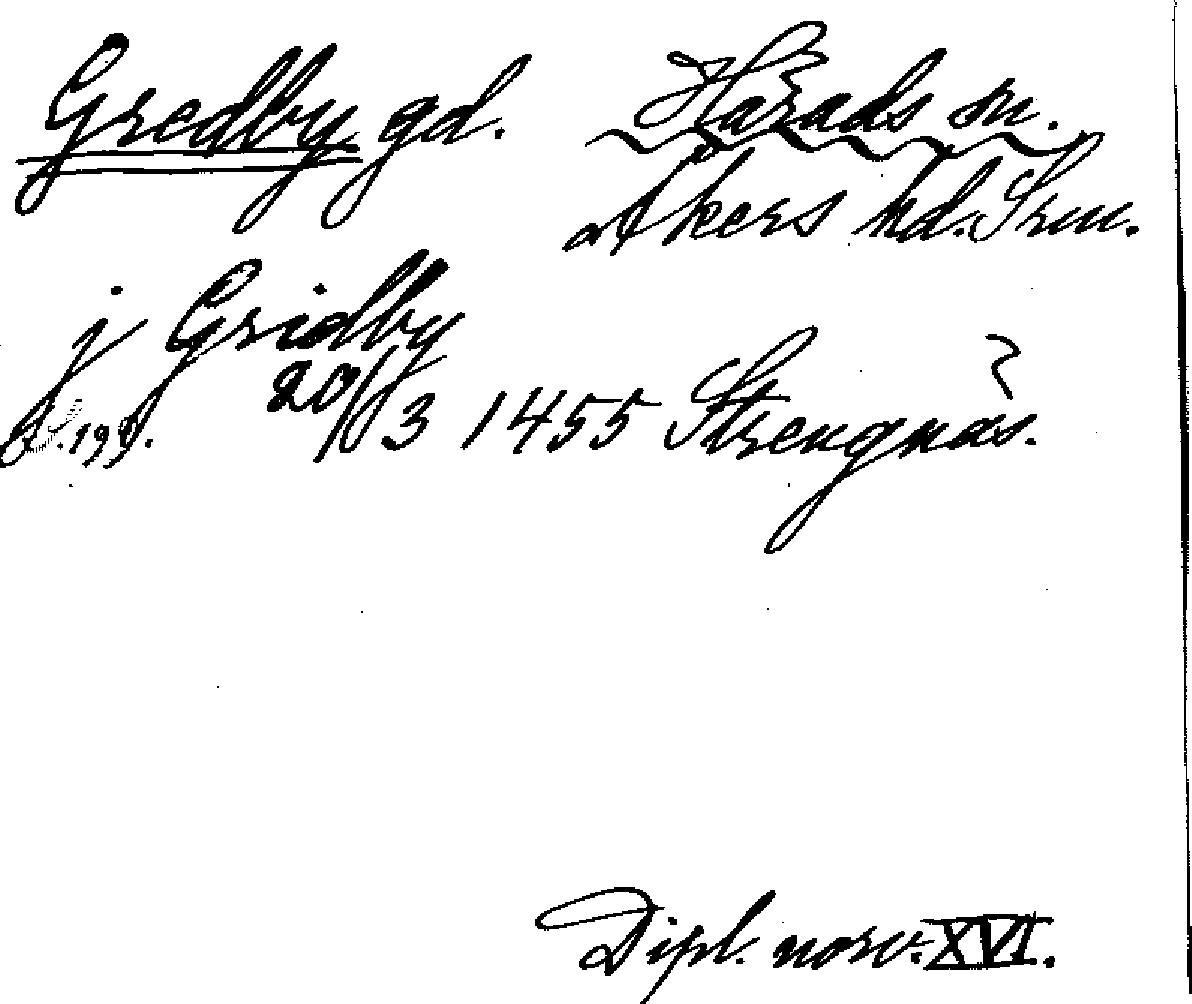 Gredby gd. Härads sn.
Åkers hd. Srm.
j Gridby
20/3 1455 Strengnäs.
s. 199.
Dipl. norv. XVI.